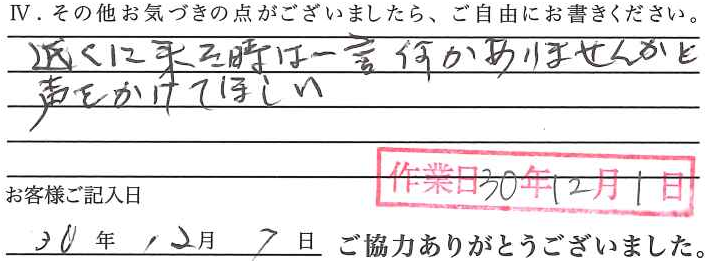 Ⅳ．その他お気づきの点がございましたら、ご自由にお書きください。
近くに来た時は一言何かありませんかと
声をかけてほしい
作業日30年12月1日
お客様ご記入日
30年12月7日 ご協力ありがとうございました。